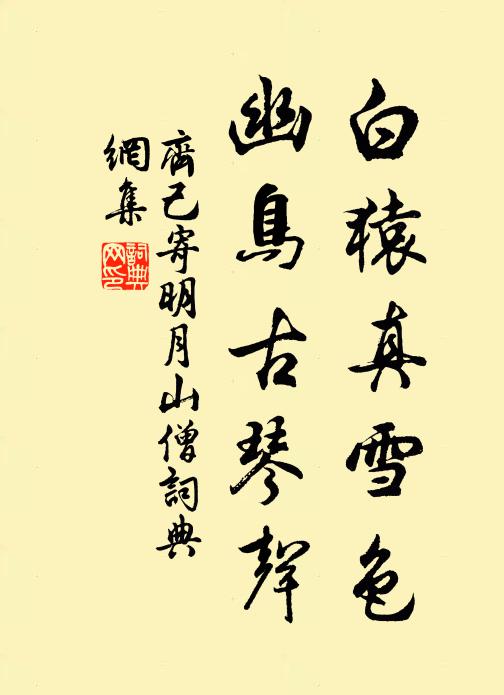 白猿真雪色
幽鳥古琴聲
齊己寄明月山僧詞典
網集
詞典
网印